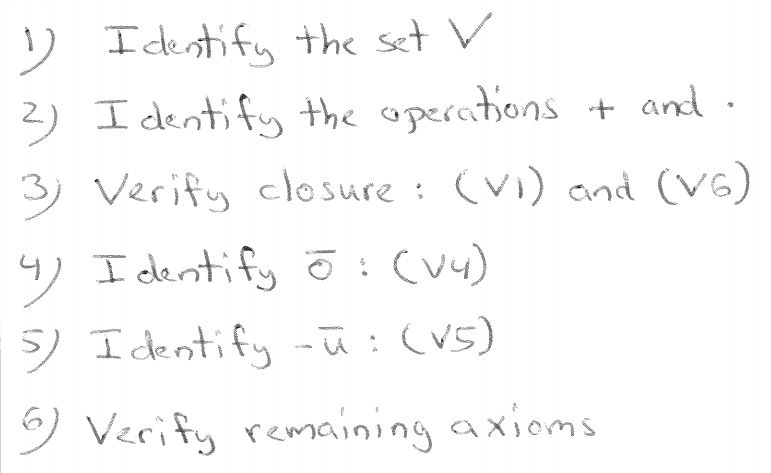 1) Identify the set V
2) Identify the operations + and ·
3) Verify closure : (V1) and (V6)
4) Identify ō : (V4)
5) Identify -ū : (V5)
6) Verify remaining axioms